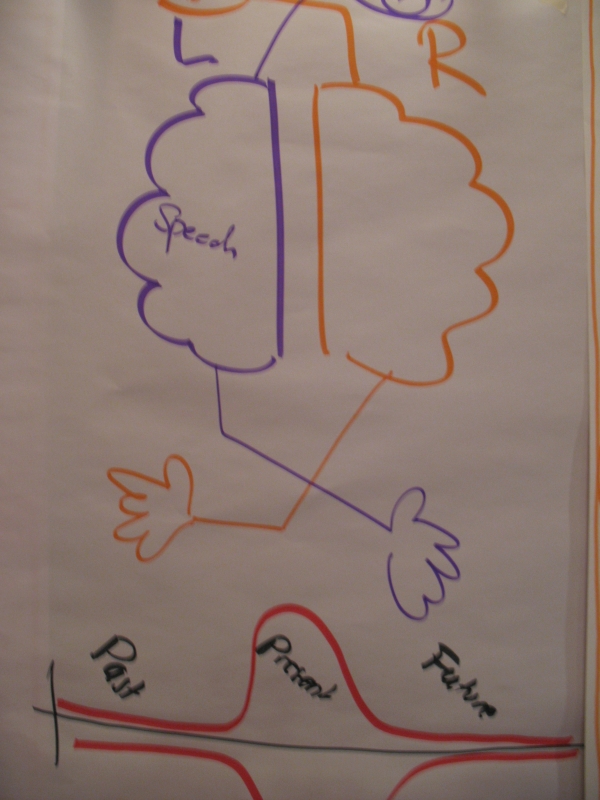 L R
Speech
Past Present Future